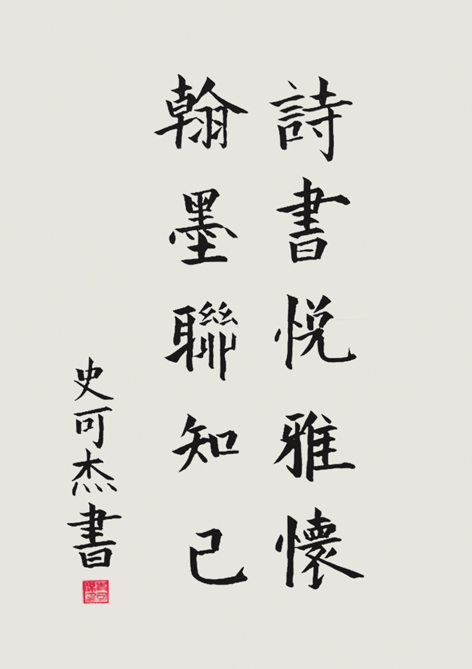 詩書悅雅懷
翰墨聯知己
史可杰書